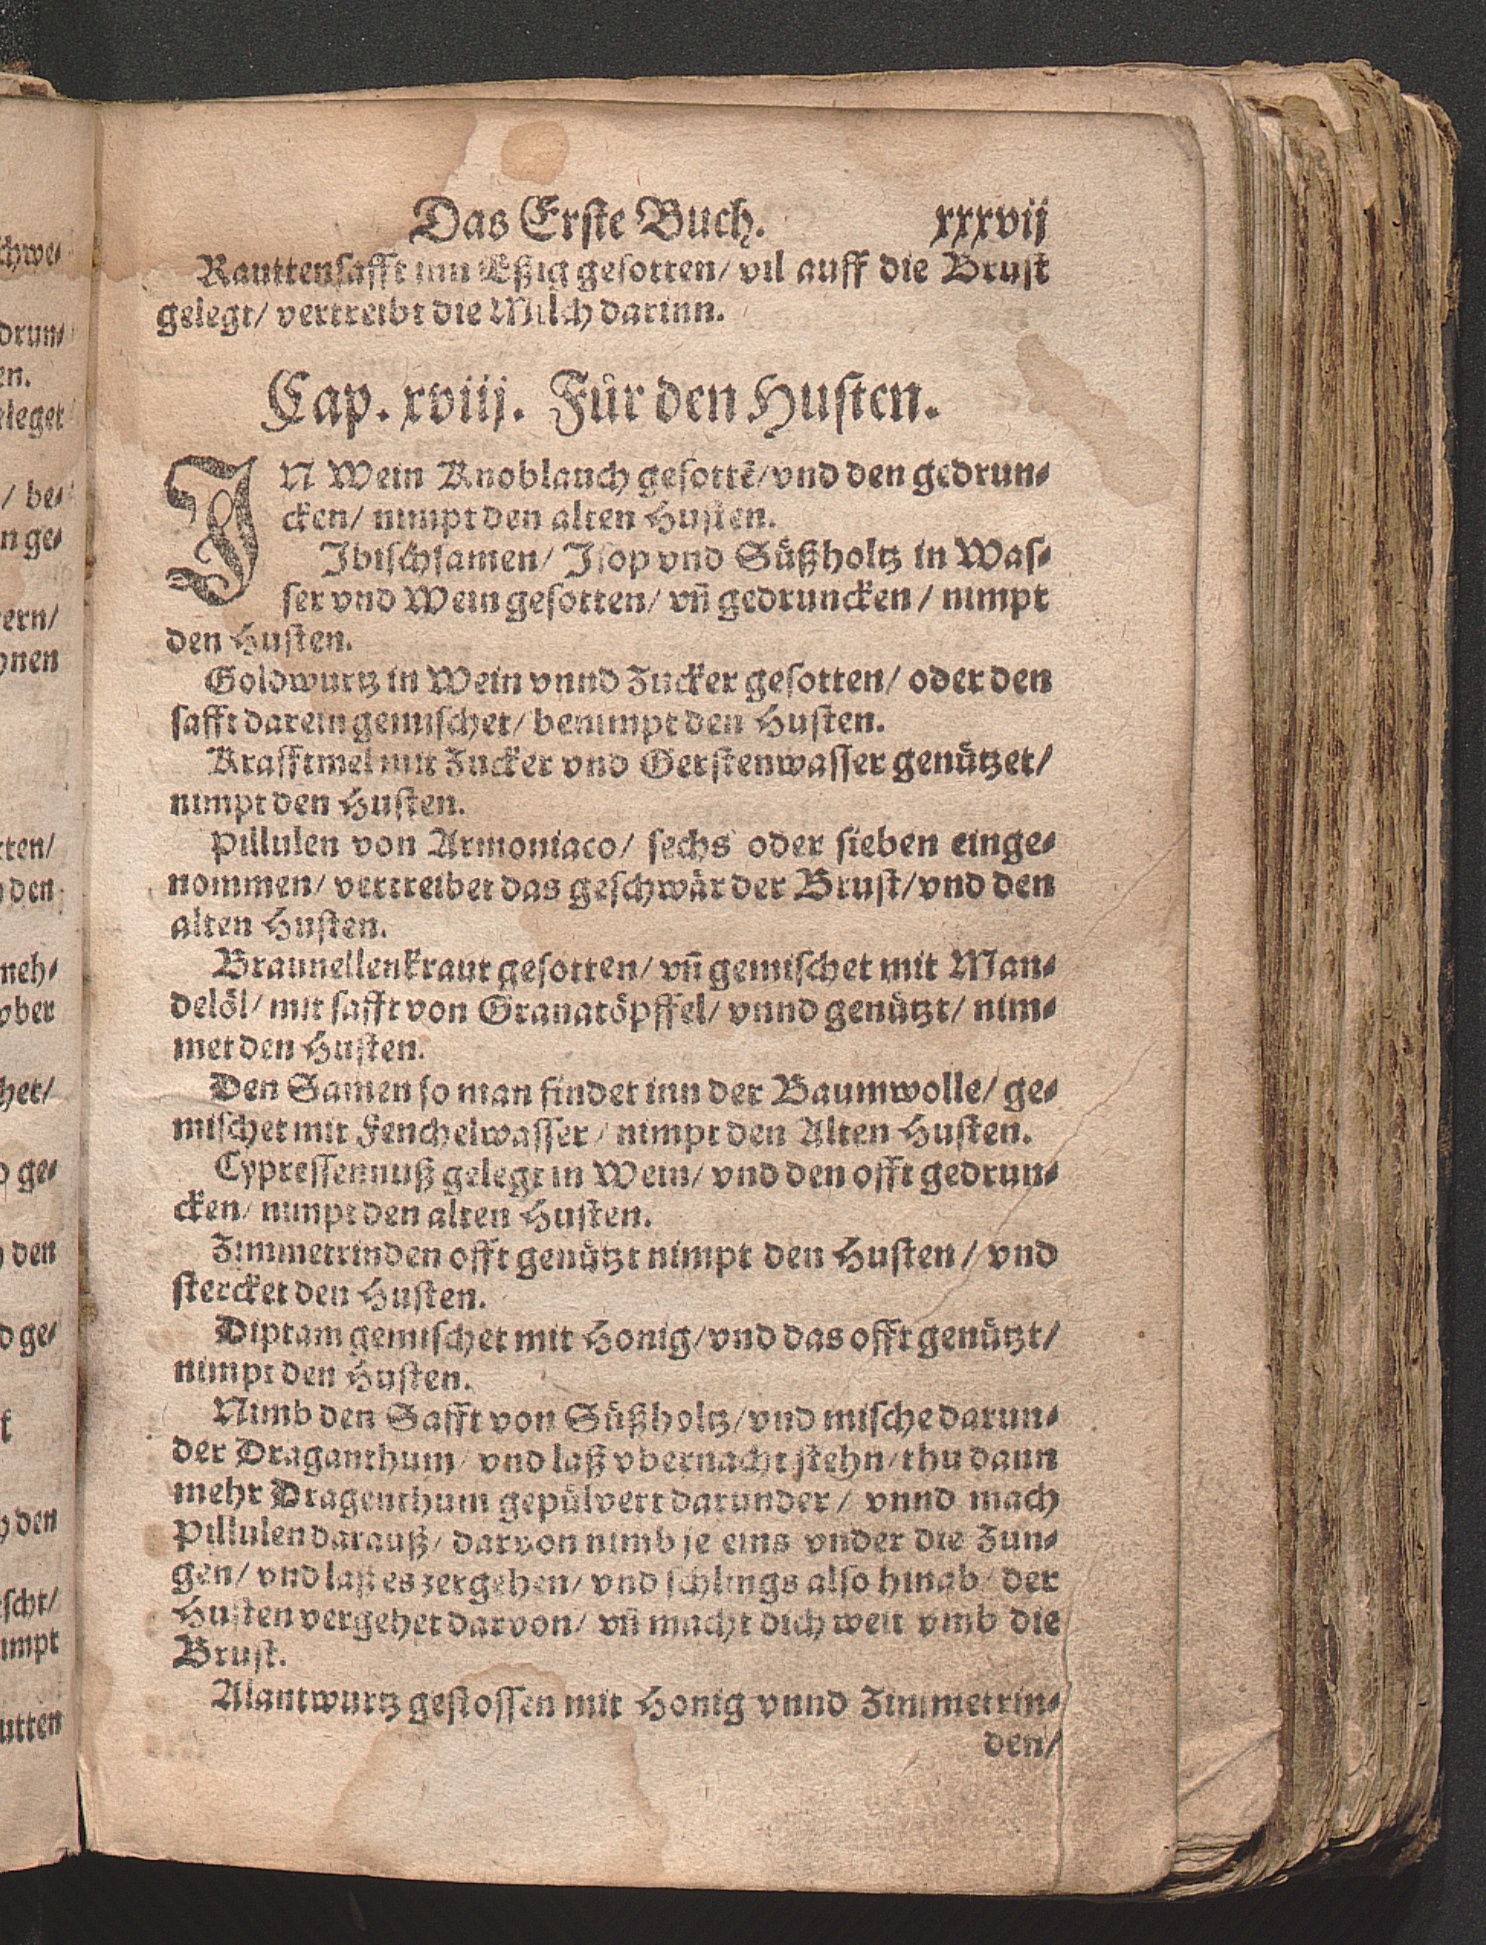 Das Erste Buch. xxxvij
Rauttensafft inn Eßig gesotten/ vil auff die Brust
gelegt/ vertreibt die Milch darinn.
Cap. xviij. Für den Husten.
IN Wein Knoblauch gesottē/ vnd den gedrun⸗
cken/ nimpt den alten Husten.
Ibischsamen/ Isop vnd Süßholtz in Was⸗
ser vnd Wein gesotten/ vñ gedruncken/ nimpt
den Husten.
Goldwurtz in Wein vnnd Zucker gesotten/ oder den
safft darein gemischet/ benimpt den Husten.
Krafftmel mit Zucker vnd Gerstenwasser genützet/
nimpt den Husten.
Pillulen von Armoniaco/ sechs oder sieben einge⸗
nommen/ vertreibet das geschwär der Brust/ vnd den
alten Husten.
Braunellenkraut gesotten/ vñ gemischet mit Man⸗
delöl/ mit safft von Granatöpffel/ vnnd genützt/ nim⸗
met den Husten.
Den Samen so man findet inn der Baumwolle/ ge⸗
mischet mit Fenchelwasser/ nimpt den Alten Husten.
Cypressennuß gelegt in Wein/ vnd den offt gedrun⸗
cken/ nimpt den alten Husten.
Zimmetrinden offt genützt nimpt den Husten/ vnd
stercket den Husten.
Diptam gemischet mit Honig/ vnd das offt genützt/
nimpt den Husten.
Nimb den Safft von Süßholtz/ vnd mische darun⸗
der Draganthum/ vnd laß vbernacht stehn/ thu dann
mehr Dragenthum gepülvert darunder/ vnnd mach
Pillulen darauß/ darvon nimb je eins vnder die Zun⸗
gen/ vnd laß es zergehen/ vnd schlings also hinab/ der
Husten vergehet darvon/ vñ macht dich weit vmb die
Brust.
Alantwurtz gestossen mit Honig vnnd Zimmetrin⸗
den/